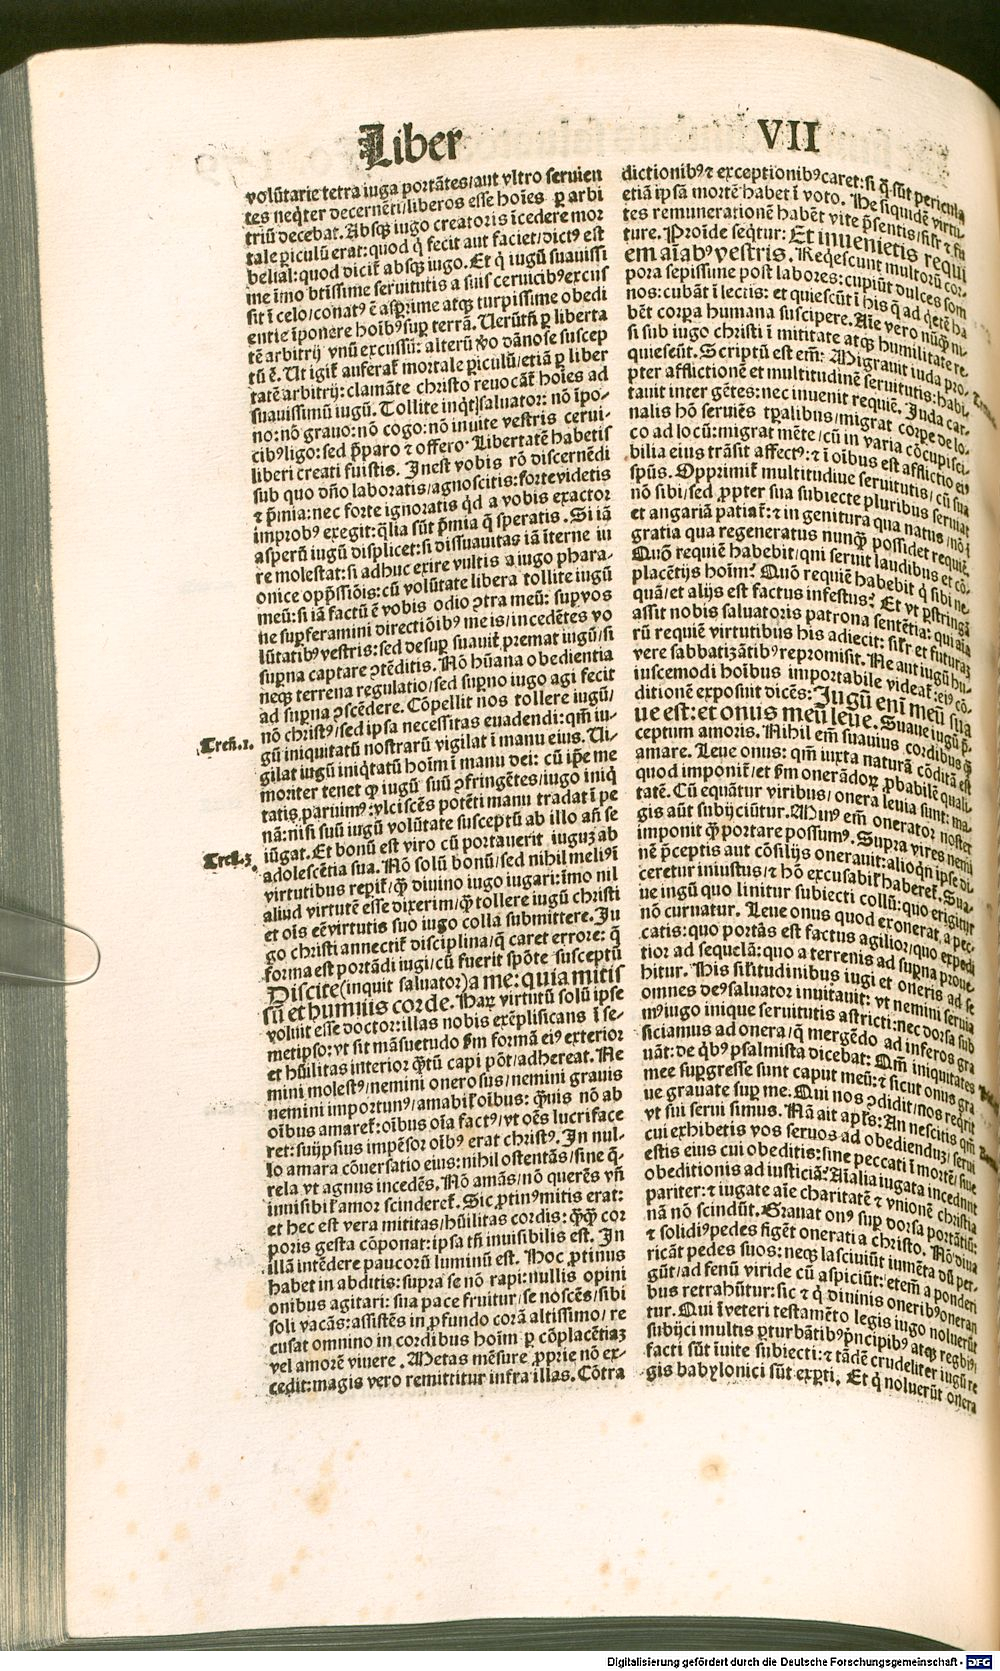 Liber VII
volūtarie tetra iuga portātes/aut vltro seruien
tes neq̄ter decernēti/liberos esse hoīes ꝑ arbi
triū decebat. Absqꝫ iugo creatoris īcedere mor
tale ꝑiculū erat: quod q̄ fecit aut faciet/dictꝰ est
belial: quod dicit̄ absqꝫ iugo. Et q̄ iugū suauissi
me īmo btīssime seruitutis a suis ceruicibꝰ excus
sit ī celo/conatꝰ ē asꝑrime atqꝫ turpissime obedi
entie īponere hoībꝰ suꝑ terrā. Uerūtn̄ ꝑ liberta
tē arbitrij vnū excussū: alterū v̄o dānose suscep
tū ē. Ut igit̄ auferat̄ mortale ꝑiculū/etiā ꝑ liber
tatē arbitrij: clamāte christo reuocāt̄ hoīes ad
suauissimū iugū. Tollite inq̄t saluator: nō īpo-
no: nō grauo: nō cogo: nō inuite vestris cerui-
cibꝰ ligo: sed p̄paro ⁊ offero. Libertatē habetis
liberi creati fuistis. Inest vobis rō discernēdi
sub quo dn̄o laboratis/agnoscitis: forte videtis
⁊ p̄mia: nec forte ignoratis q̄d a vobis exactor
improbꝰ exegit: q̄lia sūt p̄mia q̄ speratis. Si iā
asperū iugū displicet: si dissuauitas iā iterne iu
re molestat: si adhuc exire vultis a iugo phara-
onice opp̄ssiōis: cū volūtate libera tollite iugū
meū: si iā factū ē vobis odio ꝯtra meū: suꝑ vos
ne suꝑferamini directiōibꝰ meis/incedētes vo
lūtatibꝰ vestris: sed desuꝑ suauit̄ premat iugū/si
suꝑna captare ꝯtēditis. Nō hūana obedientia
neqꝫ terrena regulatio/sed suꝑno iugo agi fecit
ad suꝑna ꝯscēdere. Cōpellit nos tollere iugū/
nō christꝰ/sed ipsa necessitas euadendi: qm̄ iu-
gū iniquitatū nostrarū vigilat ī manu eius. Ui-
Treñ.1.
gilat iugū iniq̄tatū hoīm ī manu dei: cū ip̄e me
moriter tenet ꝙ iugū suū ꝯfringētes/iugo iniq̄
tatis paruimꝰ: vlciscēs potēti manu tradat ī pe
nā: nisi suū iugū volūtate susceptū ab illo an̄ se
iūgat. Et bonū est viro cū portauerit iuguꝫ ab
Treñ.3.
adolescētia sua. Nō solū bonū/sed nihil meliꝰ ī
virtutibus reꝑit̄/ꝙ̄ diuino iugo iugari: īmo nil
aliud virtutē esse dixerim/ꝙ̄ tollere iugū christi
et oīs eē virtutis suo iugo colla submittere. Ju
go christi annectit̄ disciplina/q̄ caret errore: q̄
forma est portādi iugi/cū fuerit spōte susceptū
Discite (inquit saluator) a me: quia mitis
sū et humilis corde. Harꝝ virtutū solū ipse
voluit esse doctor: illas nobis exēplificans ī se-
metipso: vt sit māsuetudo ẜm formā eiꝰ exterior
et hūilitas interior q̄tū capi pōt/adhereat. Ne
mini molestꝰ/nemini onerosus/nemini grauis
nemini importunꝰ/amabil̄ oībus: q̄uis nō ab
oībus amaret̄: oībus oīa factꝰ/vt oēs lucriface
ret: suijpsius impēsor oībꝰ erat christꝰ. In nul-
lo amara cōuersatio eius: nihil ostentās/sine q̄-
rela vt agnus incedēs. Nō amās/nō querēs vn̄
inuisibil̄ amor scinderet̄. Sic ꝓtinꝰ mitis erat:
et hec est vera mititas/hūilitas cordis: q̄q̄ cor
poris gesta cōponat: ipsa tn̄ inuisibilis est. In
illā intēdere paucorū luminū est. Hoc ꝓtinus
habet in abditis: supra se nō rapi: nullis opini
onibus agitari: sua pace fruitur/se noscēs/sibi
soli vacās: assistēs in ꝓfundo corā altissimo/re
cusat omnino in cordibus hoīm ꝑ cōplacētiaꝫ
vel amorē viuere. Metas mēsure ꝓprie nō ex-
cedit: magis vero remittitur infra illas. Cōtra
dictionibꝰ ⁊ exceptionibꝰ caret: si q̄ sūt pericula
etiā ipsā mortē habet ī voto. He siquidē virtu-
tes remunerationē habēt vite p̄sentis/sil̄r ⁊ fu
ture. Proīde seq̄tur: Et inuenietis requi
em aīabꝰ vestris. Reqescunt multorū cor-
pora sepissime post labores: cupiūt dulces som
nos: cubāt ī lectis: et quiescūt ī his q̄ ad q̄etē ha
bēt corꝑa humana suscipere. Aīe vero nūq̄ ni-
si sub iugo christi ī mititate atqꝫ humilitate re-
quiescūt. Scriptū est em̄: Migrauit iuda pro-
pter afflictionē et multitudinē seruitutis: habi-
tauit inter gētes: nec inuenit requiē. Juda car-
nalis hō seruiēs tꝑalibus/migrat corꝑe de lo-
co ad locū: migrat mēte/cū in varia cōcupisci-
bilia eius trāsit affectꝰ: ⁊ ī oībus est afflictio eiꝰ
spūs. Opprimit̄ multitudine seruitutis/cū sua
nō sibi/sed ꝓpter sua subiecte pluribus seruiat
et angariā patiat̄: ⁊ in genitura qua natus/nō ī
gratia qua regeneratus nunq̄ possidet requiē.
Quō requiē habebit/qui seruit laudibus et cō-
placētijs hoīm? Quō requiē habebit q̄ sibi ne
quā/et alijs est factus infestus? Et vt ꝑstringā
assit nobis saluatoris patrona sentētia: qui aīa
rū requiē virtutibus his adiecit: sil̄r et futuraꝫ
vere sabbatizātibꝰ repromisit. Ne aut iugū hu-
iuscemodi hoībus importabile videat̄: eiꝰ cō-
ditionē exposuit dicēs: Jugū eni meū sua
ue est: et onus meū leue. Suaue iugū p̄-
ceptum amoris. Nihil em̄ suauius cordibus q̄
amare. Leue onus: qm̄ iuxta naturā cōditā est
quod imponit̄/et ẜm onerādoꝝ ꝓbabilē quali-
tatē. Cū equātur viribus/onera leuia sunt: ma-
gis aūt subijciūtur. Minꝰ em̄ onerator noster
imponit q̄ portare possumꝰ. Supra vires nemi
nē p̄ceptis aut cōsilijs onerauit: alioq̄n ipse di-
ceretur iniustus/⁊ hō excusabil̄ haberet̄. Sua-
ue iugū quo linitur subiecti collū: quo erigitur
nō curuatur. Leue onus quod exonerat a pec-
catis: quo portās est factus agilior/quo expedi
tior ad sequelā: quo a terrenis ad suꝑna proue-
hitur. His sil̄itudinibus iugi et oneris ad se
omnes deꝰ saluator inuitauit: vt nemini serui
mꝰ iugo inique seruitutis astricti: nec dorsa sub
siciamus ad onera/q̄ mergēdo ad inferos gra
uāt: de q̄bꝰ psalmista dicebat: Qm̄ iniquitates
mee suꝑgresse sunt caput meū: ⁊ sicut onus gra
ue grauate suꝑ me. Qui nos ꝯdidit/nos reqrit
vt sui serui simus. Nā ait apl̄s: An nescitis qm̄
cui exhibetis vos seruos ad obediendum/serui
estis eius cui obeditis: siue peccati ī mortē/siue
obeditionis ad iusticiā? Aīalia iugata incedunt
pariter: ⁊ iugate aīe charitatē ⁊ vnionē christia
nā nō scindūt. Grauat onꝰ suꝑ dorsa portātiū:
⁊ solidiꝰ pedes figēt onerati a christo. Nō diua
ricāt pedes suos: neqꝫ lasciuiūt iumēta dū per-
gūt/ad fenū viride cū aspiciūt: etem̄ a ponderi
bus retrahūtur: sic ⁊ q̄ diuinis oneribꝰ oneran
tur. Qui ī veteri testamēto legis iugo noluerūt
subijci multis ꝑturbātibꝰ p̄ncipibꝰ atqꝫ regibꝰ
facti sūt īuite subiecti: ⁊ tādē crudeliter iugū re
gis babylonici sūt exꝑti. Et q̄ noluerūt onera
Digitalisierung gefördert durch die Deutsche Forschungsgemeinschaft - DFG